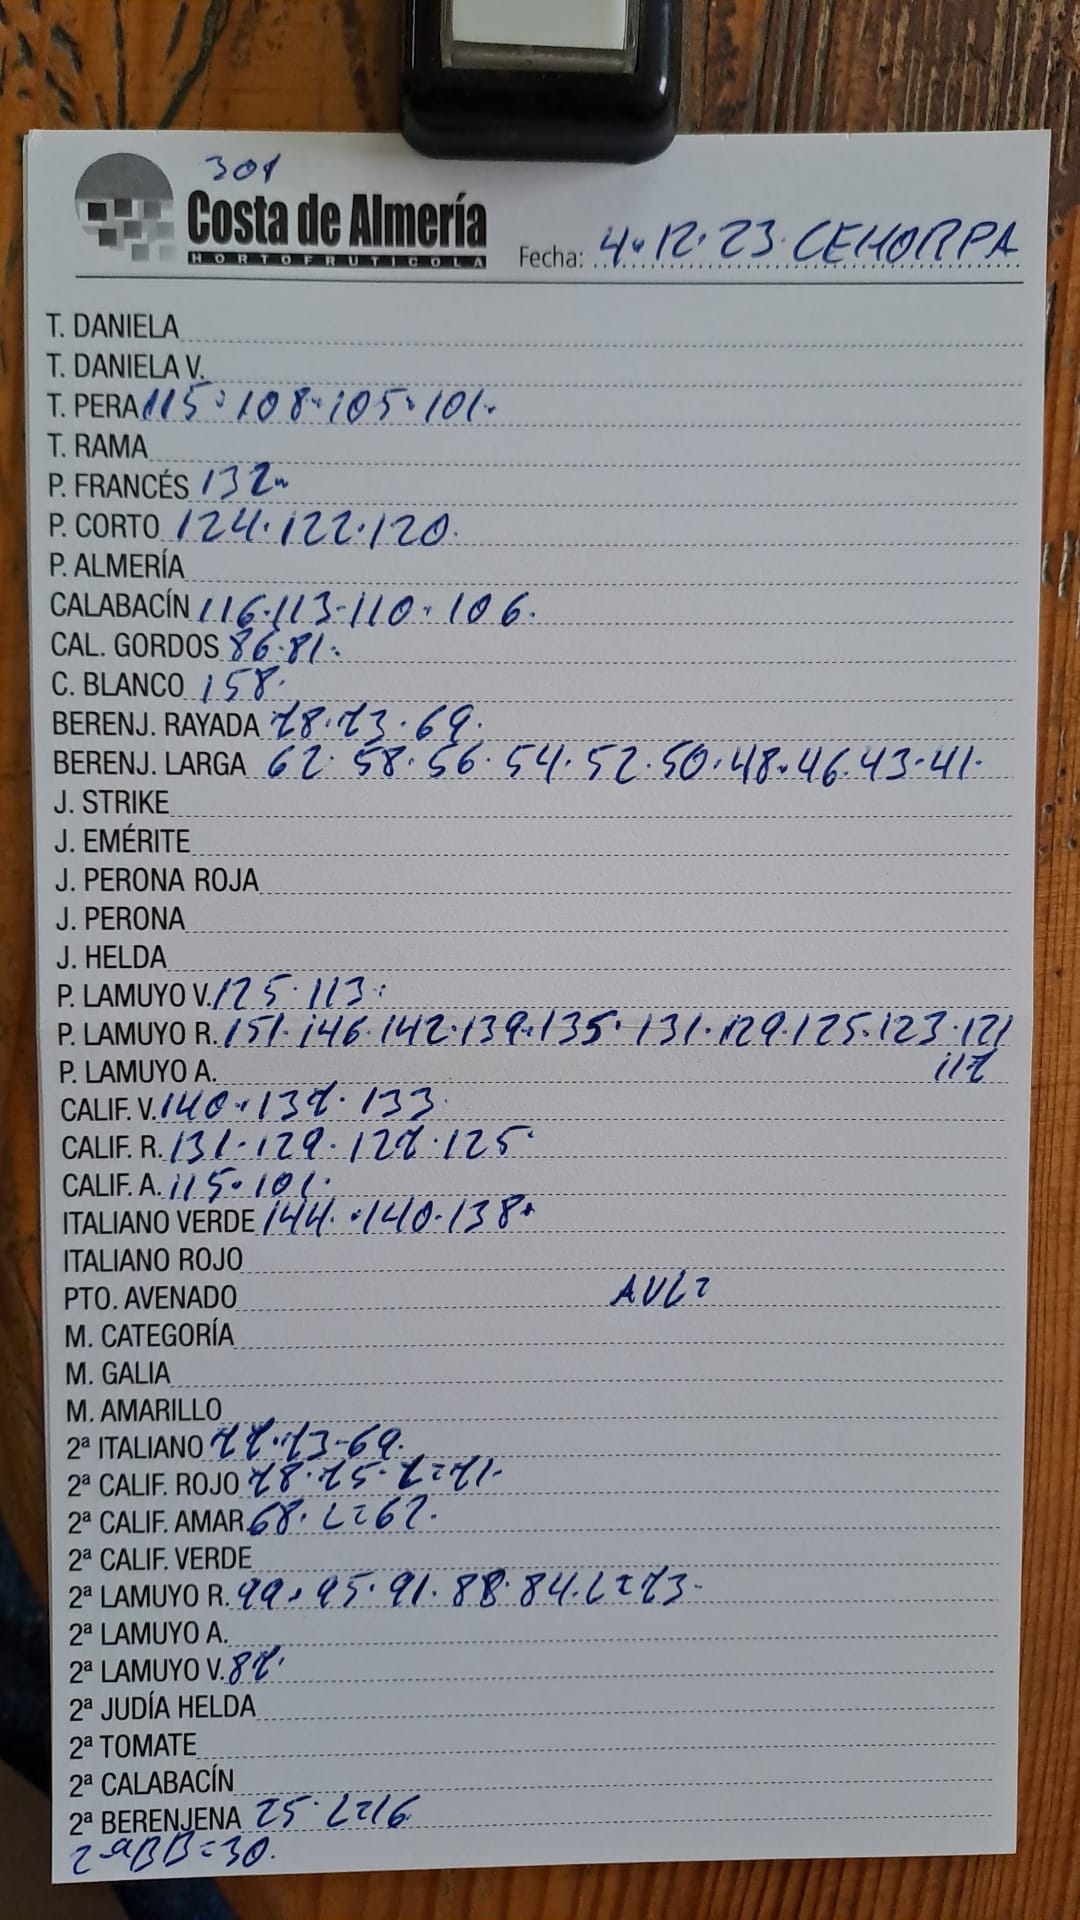 301
Costa de Almería
HORTOFRUTICOLA
Fecha: 4·12·23· CEHORPA
T. DANIELA
T. DANIELA V.
T. PERA 115·108·105·101·
T. RAMA
P. FRANCÉS 132·
P. CORTO 124·122·120·
P. ALMERÍA
CALABACÍN 116·113·110·106·
CAL. GORDOS 86·81·
C. BLANCO 158·
BERENJ. RAYADA 78·73·69·
BERENJ. LARGA 62·58·56·54·52·50·48·46·43·41·
J. STRIKE
J. EMÉRITE
J. PERONA ROJA
J. PERONA
J. HELDA
P. LAMUYO V. 125·113·
P. LAMUYO R. 151·146·142·139·135·131·129·125·123·121
117
P. LAMUYO A.
CALIF. V. 140·137·133·
CALIF. R. 131·129·127·125·
CALIF. A. 115·101·
ITALIANO VERDE 144·140·138·
ITALIANO ROJO
PTO. AVENADO
M. CATEGORÍA
M. GALIA
M. AMARILLO
2ª ITALIANO 77·73-69·
2ª CALIF. ROJO 78·75·L=71·
2ª CALIF. AMAR. 68·L=62·
2ª CALIF. VERDE
2ª LAMUYO R. 99·95·91·88·84·L=73·
2ª LAMUYO A.
2ª LAMUYO V. 87·
2ª JUDÍA HELDA
2ª TOMATE
2ª CALABACÍN
2ª BERENJENA 25·L=16
2ªBB=30·